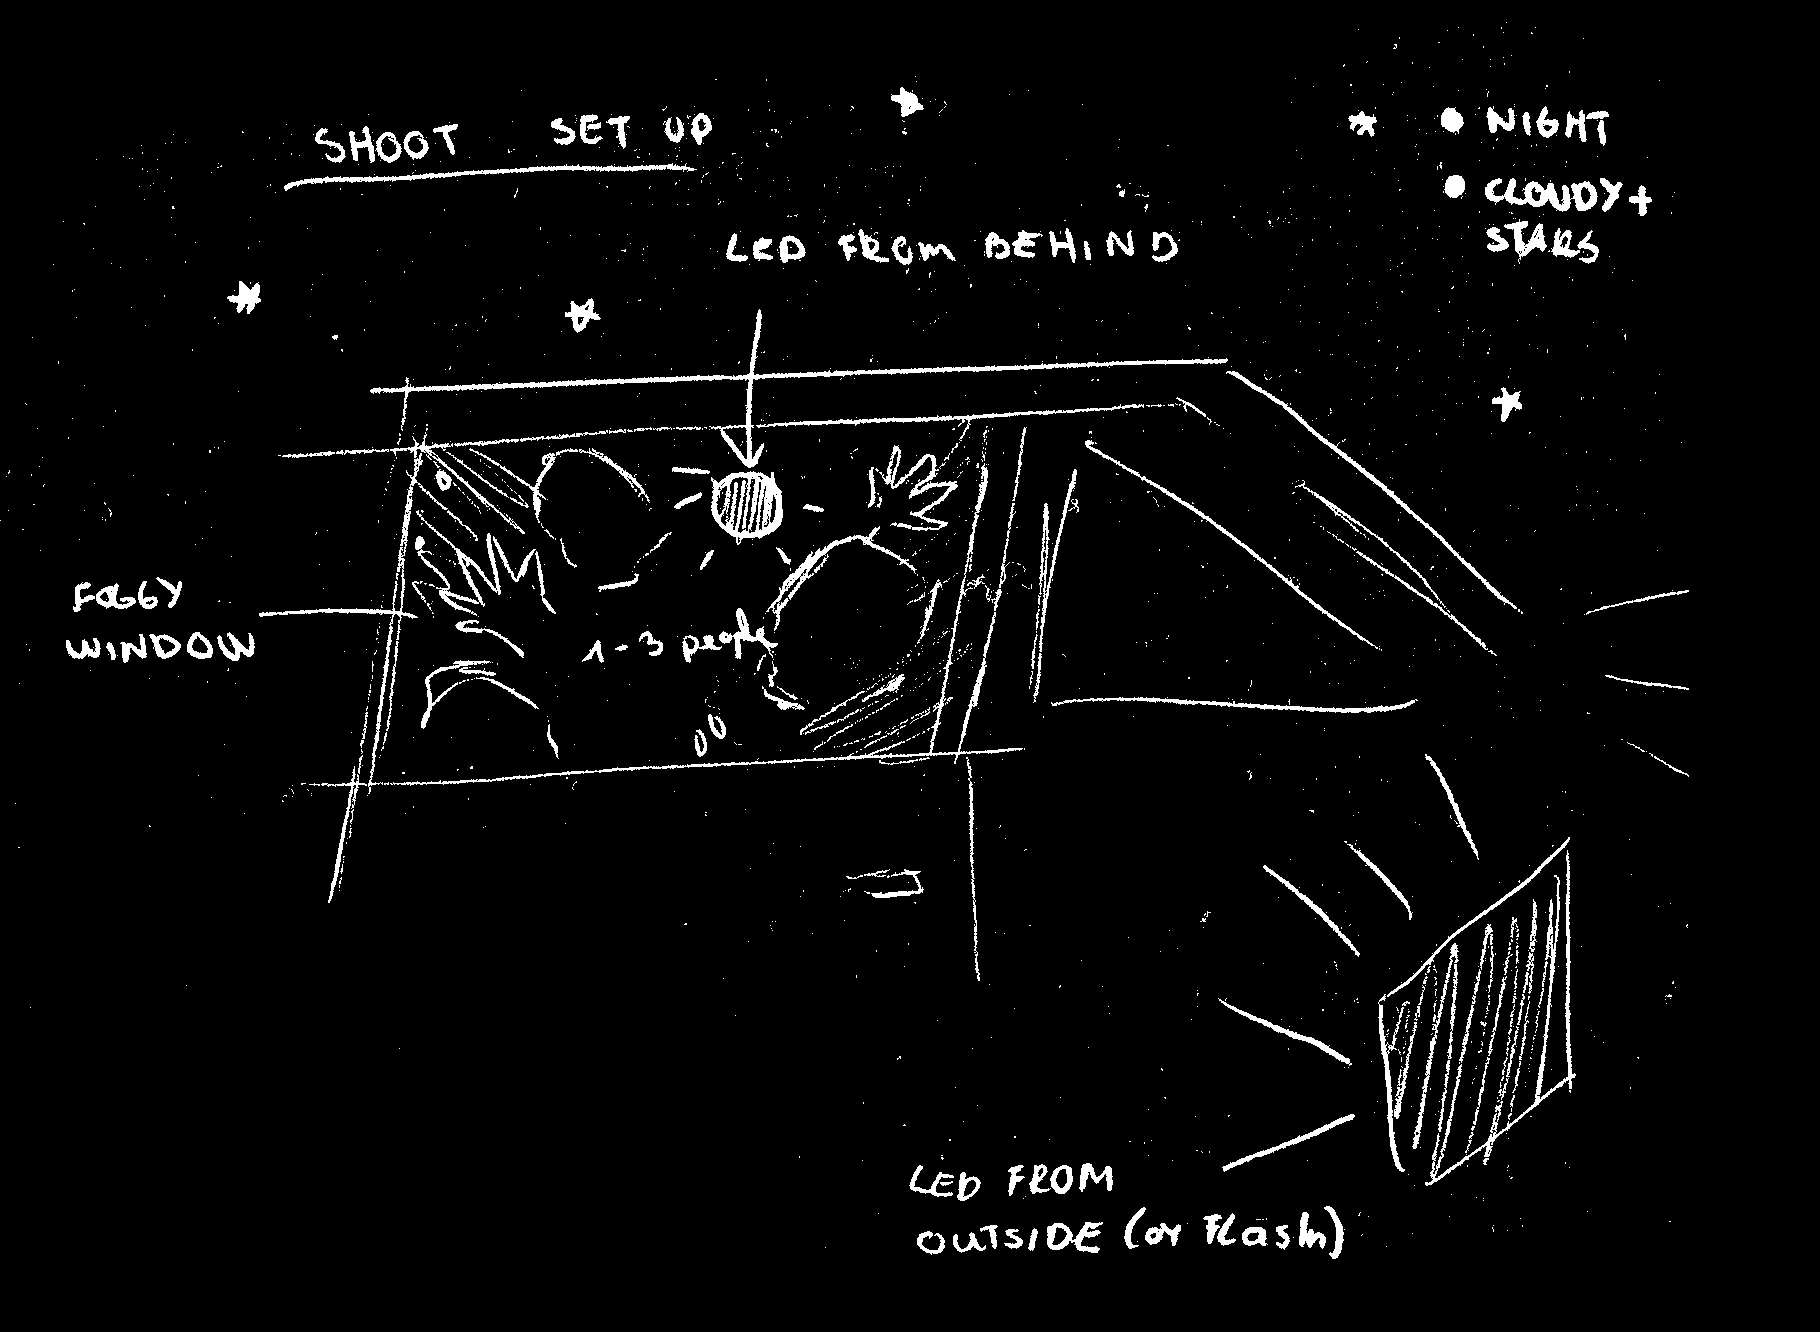 SHOOT SET UP
• NIGHT
• CLOUDY +
STARS
LED FROM BEHIND
FOGGY
WINDOW
1-3 people
LED FROM
OUTSIDE (or Flash)